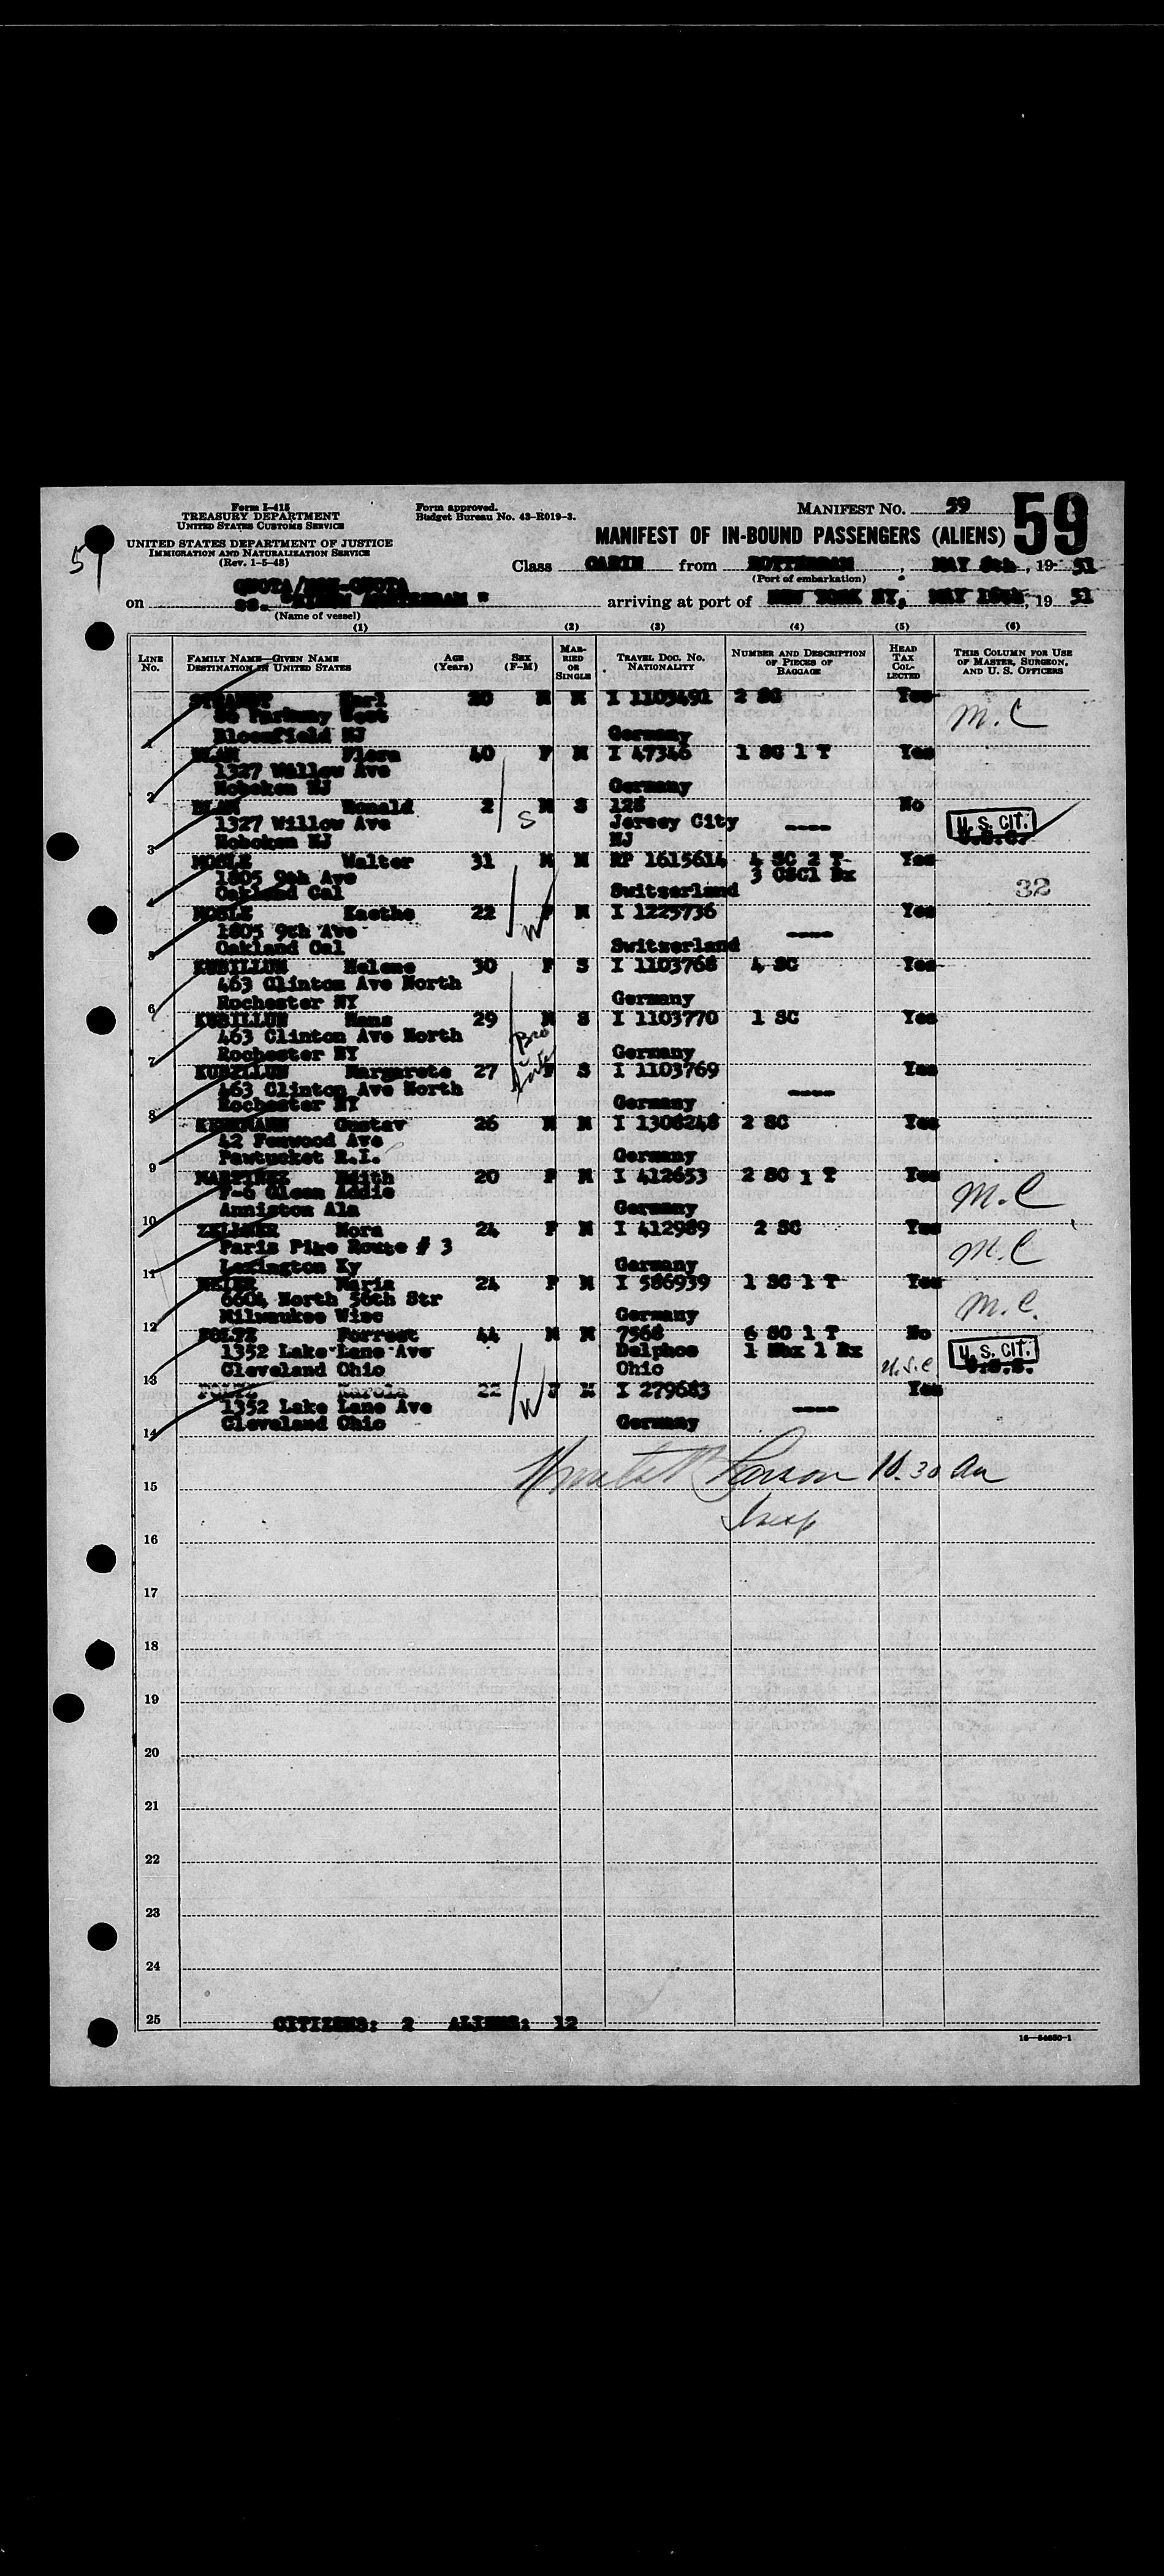 Form I-415
TREASURY DEPARTMENT
UNITED STATES CUSTOMS SERVICE
UNITED STATES DEPARTMENT OF JUSTICE
IMMIGRATION AND NATURALIZATION SERVICE
(Rev. 1-5-48)
Form approved.
Budget Bureau No. 43-R019-3.
MANIFEST No. 59
59
MANIFEST OF IN-BOUND PASSENGERS (ALIENS)
Class CABIN from ROTTERDAM, MAY 8th, 19 51
(Port of embarkation)
QUOTA/NON-QUOTA
on ss. " AMSTERDAM " arriving at port of NEW YORK NY, MAY 16th, 19 51
(Name of vessel)
(1) (2) (3) (4) (5) (6)
LINE No. FAMILY NAME—GIVEN NAME DESTINATION IN UNITED STATES AGE (Years) SEX (F-M) MARRIED OR SINGLE TRAVEL DOC. No. NATIONALITY NUMBER AND DESCRIPTION OF PIECES OF BAGGAGE HEAD TAX COLLECTED THIS COLUMN FOR USE OF MASTER, SURGEON, AND U. S. OFFICERS
Karl M M I 1103491 2 SC Yes M.C
Parkway West
1 Bloomfield NJ Germany
Flora 40 F M I 47346 1 SC 1 T Yes
1327 Willow Ave
2 Hoboken NJ Germany
Ronald 2 S M S 128 No U.S. CIT.
1327 Willow Ave Jersey City ----
3 Hoboken NJ NJ
Walter 31 M M RP 1615614 4 SC 2 T Yes
1805 9th Ave 3 CSCl Bx
4 Oakland Cal Switzerland 32
Kaethe 22 W F M I 1225736 Yes
1805 9th Ave ----
5 Oakland Cal Switzerland
KUBILLUN Helene 30 F S I 1103768 4 SC Yes
463 Clinton Ave North
6 Rochester NY Germany
KUBILLUN Hans 29 M S I 1103770 1 SC Yes
463 Clinton Ave North
7 Rochester NY Germany
KUBILLUN Margarete 27 F S I 1103769 Yes
463 Clinton Ave North ----
8 Rochester NY Germany
Gustav 26 M M I 1308248 2 SC Yes
42 Fenwood Ave
9 Pawtucket R.I. Germany
MARTINEZ Edith 20 F M I 412653 2 SC 1 T Yes M.C
F-6 Glenn Addie
10 Anniston Ala Germany
ZELLNER Nora 24 F M I 412989 2 SC Yes M.C
Paris Pike Route # 3
11 Lexington Ky Germany
Maria 24 F M I 586939 1 SC 1 T Yes M.C.
6604 North 56th Str
12 Milwaukee Wisc Germany
Forrest 44 M M 7568 6 SC 1 T No U.S. CIT.
1352 Lake Lane Ave Delphos 1 Bx
13 Cleveland Ohio Ohio U.S.C
Karola 22 W F M I 279683 Yes
1352 Lake Lane Ave ----
14 Cleveland Ohio Germany
15 10.30 am
Insp
16
17
18
19
20
21
22
23
24
25 CITIZENS: 2 ALIENS: 12